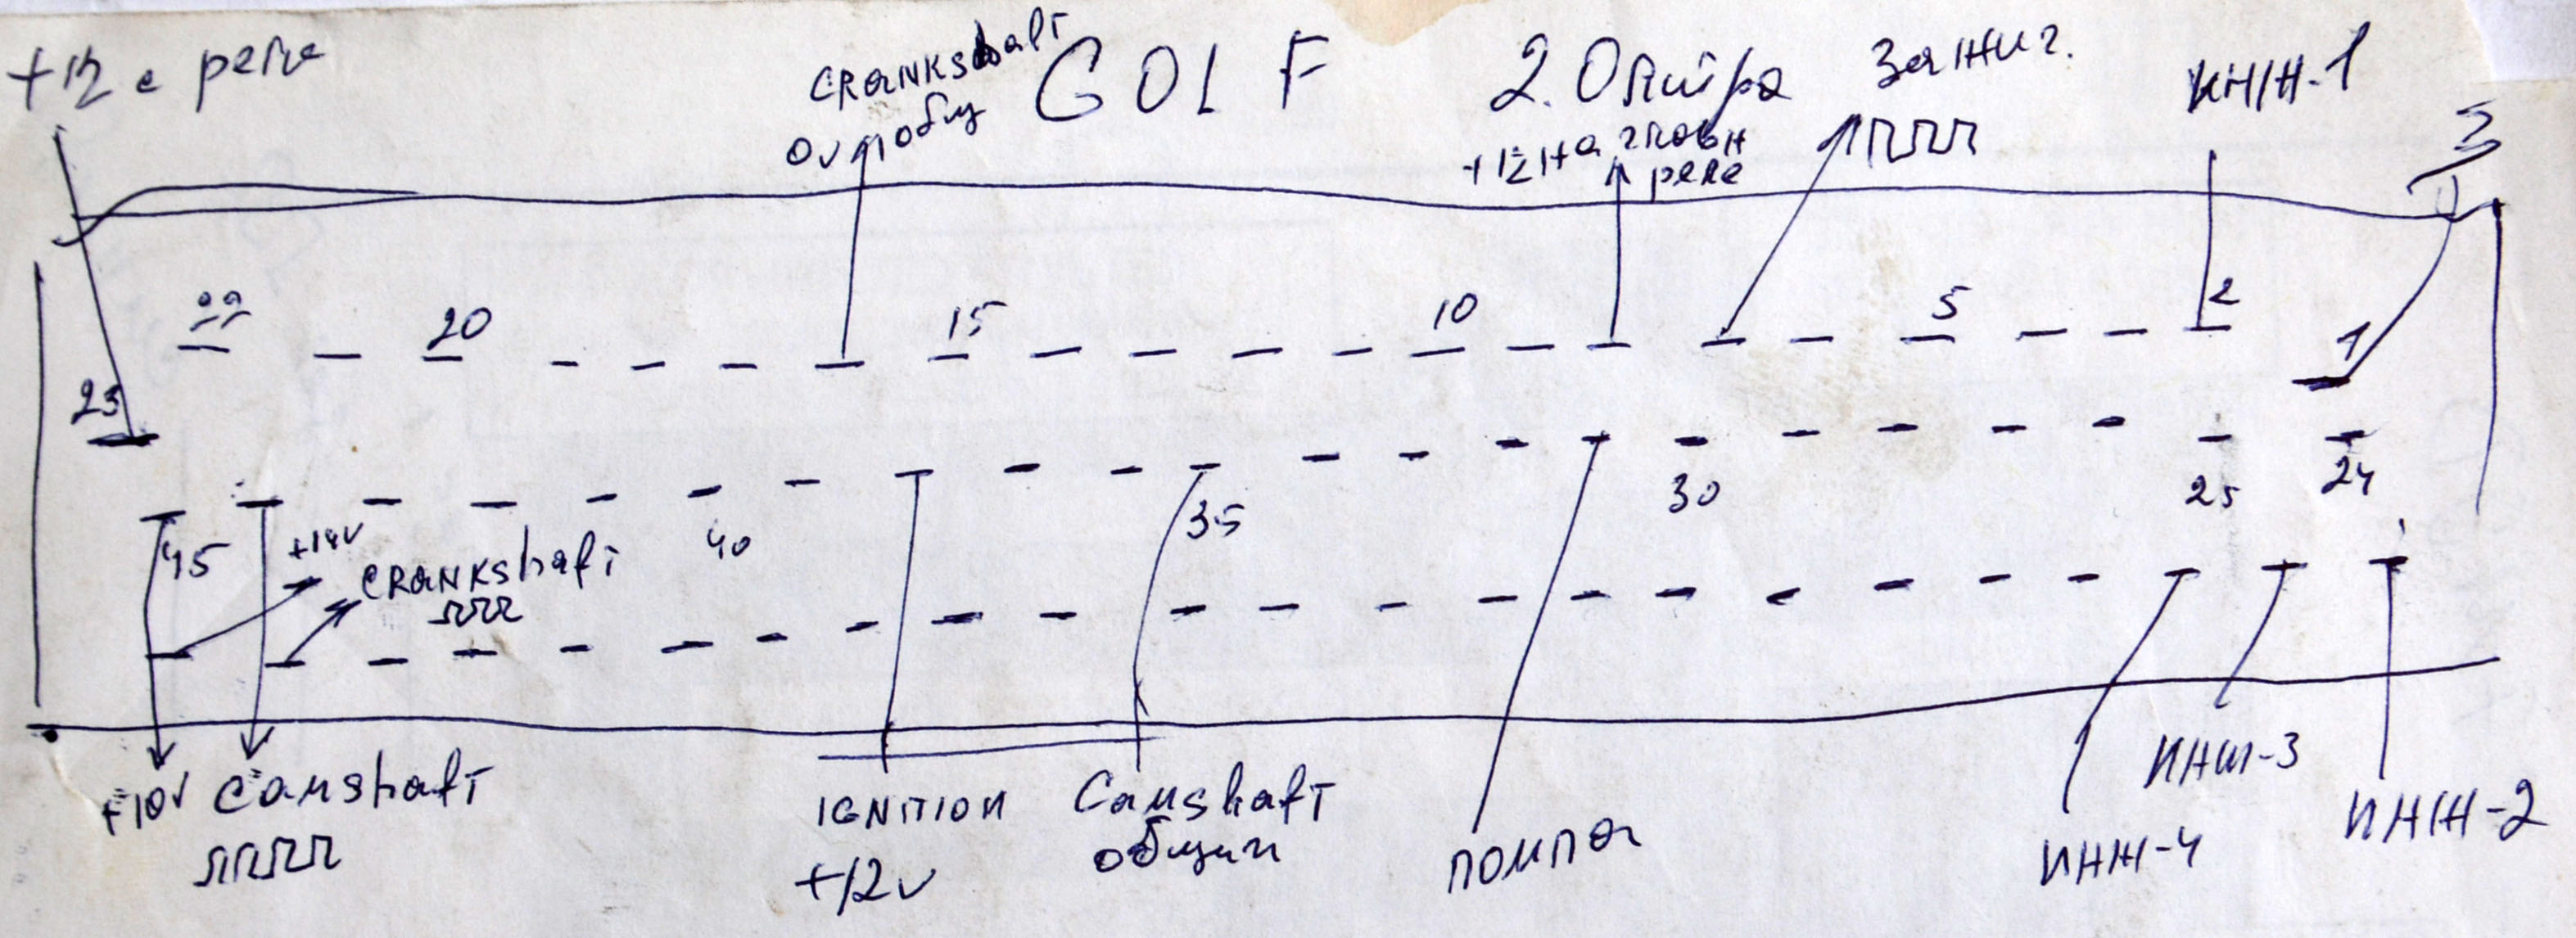 +12 с реле
CRANKshaft
0v по общ
GOLF
2.0 литра
зажиг.
+12 на главн
реле
ИНЖ-1
22
20
15
10
5
2
1
23
45
+14v
CRANKshaft
40
35
30
25
24
+10v
Camshaft
IGNITION
+12v
Camshaft
общий
помпа
ИНЖ-4
ИНЖ-3
ИНЖ-2